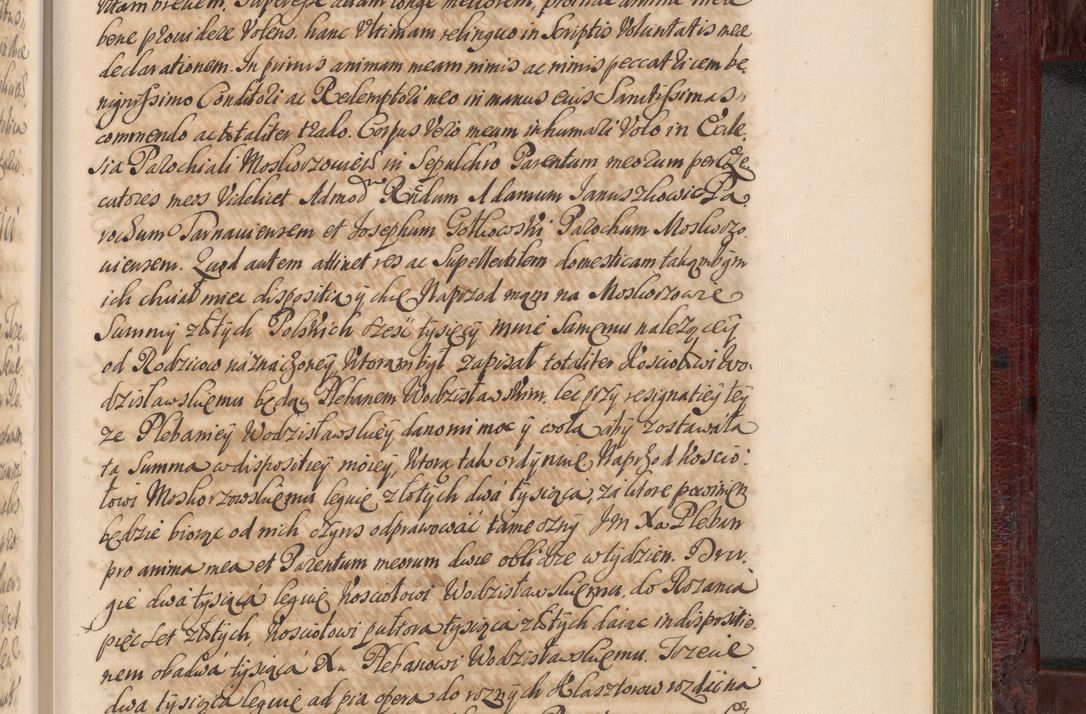 vitam brevem, superesse autem longe meliorem, proinde animæ meæ
bene providere Volens, hanc Vltimam relinquo in Scriptis Voluntatis meæ
declarationem. In primis animam meam nimis ac nimis peccatricem be
nignissimo Conditori ac Redemptori meo in manus eius Sanctissimas
commendo ac totaliter trado. Corpus Vero meum inhumari Volo in Eccle
sia Parochiali Moskorzowiens in Sepulchro Parentum meorum per exe
cutores meos Videlicet Admod Rndum Adamum Januszkowic Pa
rochum Tarnaviensem et Josephum Gotkowski Parochum Moskorzo
viensem. Quod autem attinet res ac Supellectilem domesticam taką bym
ich chciał miec disposition y chcę Naprzod mam na Moskorzowie
Summy złotych Polskich sześć tysięcy mnie samemu należącey
od Rodzicow naznaczoney, ktorąm był zapisał totaliter Kosciołowi Wo
dzisławskiemu będąc Plebanem Wodzisławskim, lec przy resignatiey tey
ze Plebaniey Wodzisławskiey danomi moc y wolą aby zostawała
ta Summa w dispositiey moiey, Ktorą tak ordynuię Naprzod Koscio
łowi Moskorzowskiemu leguię złotych dwa tysiąca, za ktore powinien
będzie biorąc od nich czyns odprawować tameczny Jm Xa Pleban
pro anima mea et Parentum meorum dwie obligacie w tydzien. Dru
gie dwa tysiąca leguię Kosciołowi Wodzisławskiemu, do Rożanca
pięc set złotych, Kosciołowi pułtora tysiąca złotych daiąc in dispositio
nem obadwa tysiąca Xu Plebanowi Wodzisławskiemu. Trzecie
dwa tysiąca leguię ad pia opera do roznych Klasztorow rozdać na